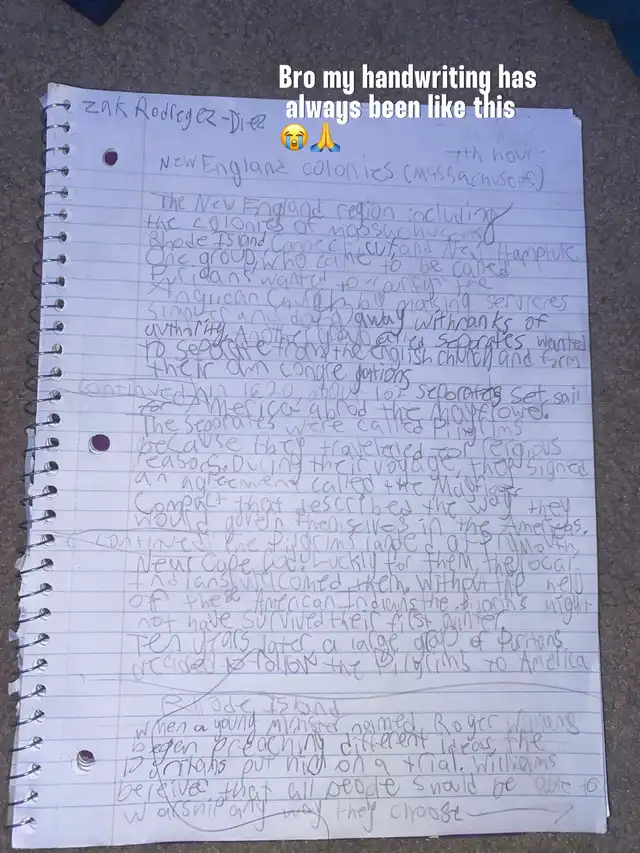 Bro my handwriting has
always been like this
😭🙏
zak Rodregez-Diez
7th hour
New England colonies (Massachusets)
The New England region including
the colonies of massachucets
Rhode Island, and New
One group who came to be called
Puritans wanted to the
Anglican Church by making services
simpler and doing away with ranks of
authority. Another group called separates wanted
to separate from the english church and form
their own congregations
continued In 1620, about 102 separates set sail
for America abrod the Mayflower.
The separates were called pilgrims
because they traveled for reigious
reasons. During their voyage, they signed
an agreement called the Mayflower
Compact that described the way they
would govern themselves in the Americas.
continued The pilgrims landed at Plymouth
Near Cape Luckily for them, the local
Indians welcomed them. Without the help
of these American Indians the might
not have survived their first winter
Ten years later a large group of Puritans
decided to follow the Pilgrims to America
Rhode Island
When a young minister named Roger Williams
began preaching different ideas, the
Puritans put him on a trial. Williams
beleived that all people should be able to
any way they choose